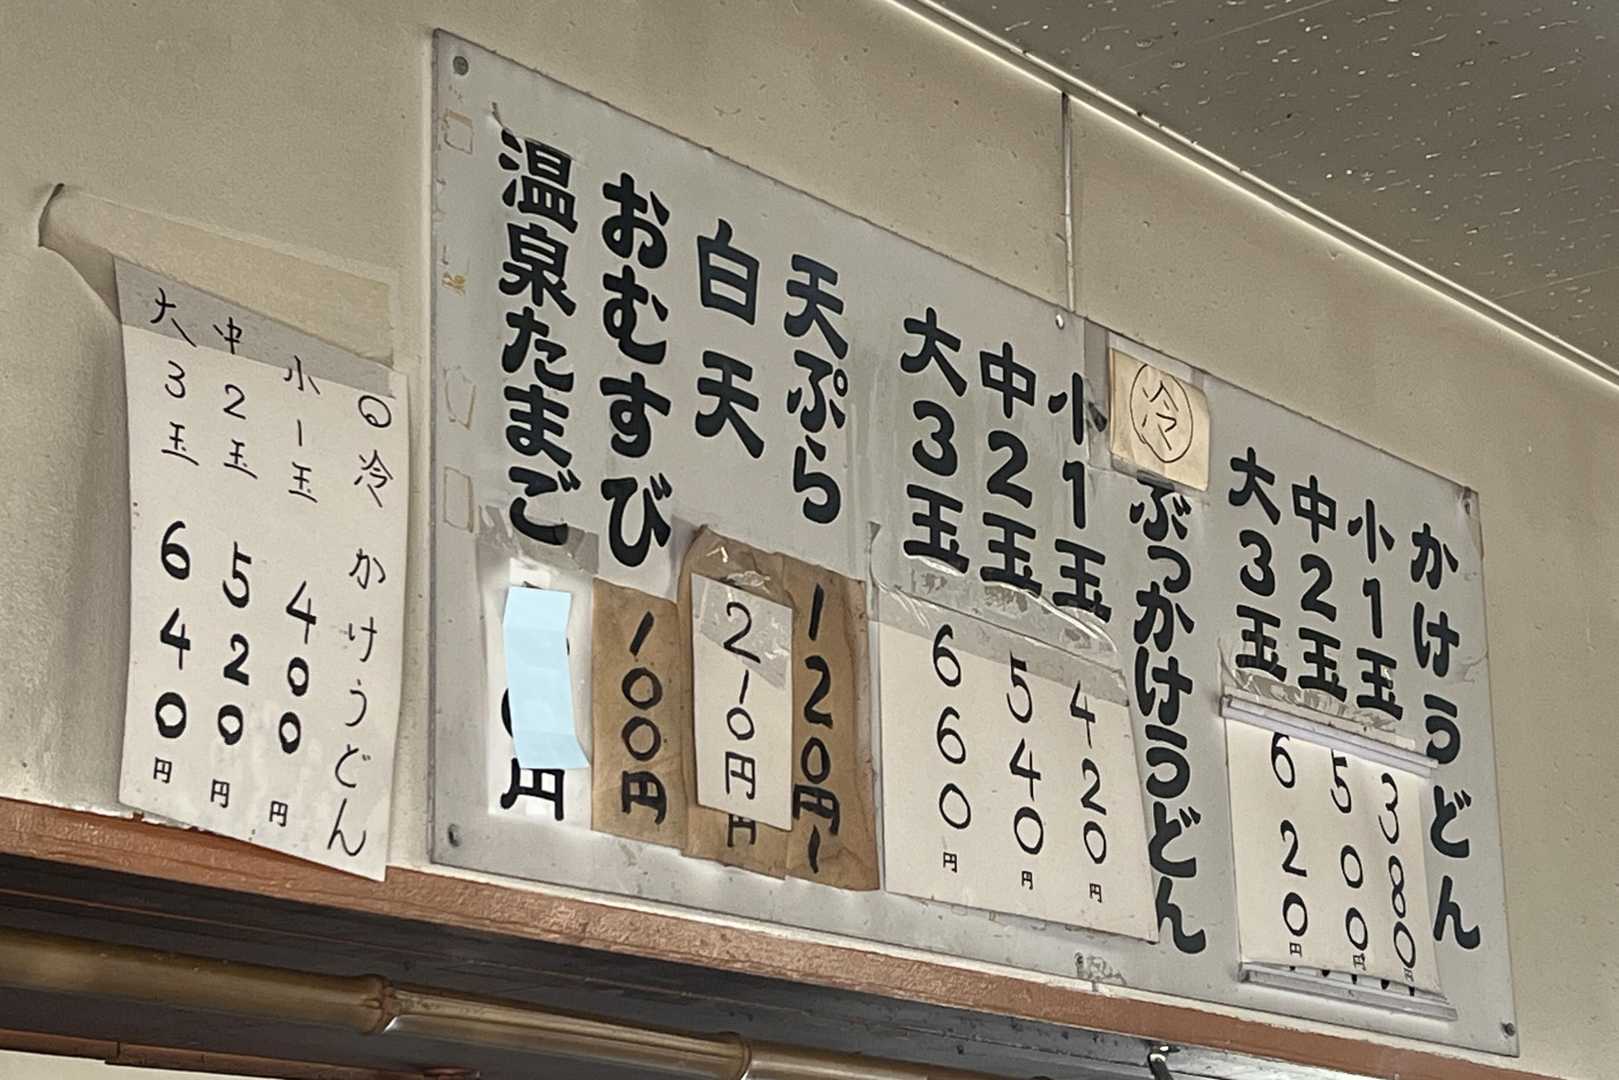 かけうどん
小1玉 380円
中2玉 500円
大3玉 620円
冷
ぶっかけうどん
小1玉 420円
中2玉 540円
大3玉 660円
天ぷら 120円
白天 210円
おむすび 100円
温泉たまご 円
冷かけうどん
小1玉 400円
中2玉 520円
大3玉 640円